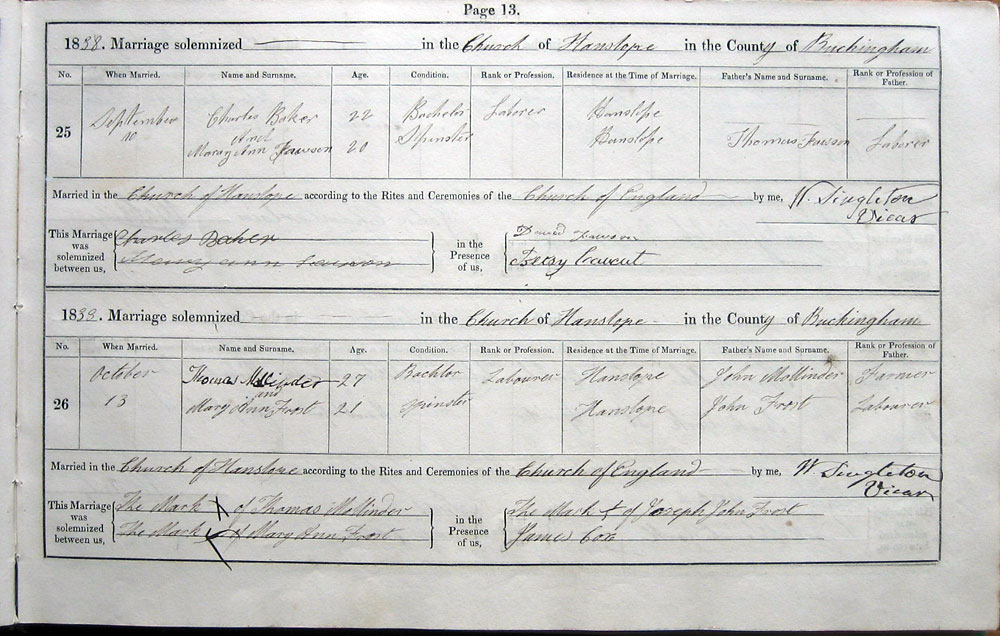 Page 13.
1838. Marriage solemnized in the Church of Hanslope in the County of Buckingham
No. When Married. Name and Surname. Age. Condition. Rank or Profession. Residence at the Time of Marriage. Father's Name and Surname. Rank or Profession of Father.
25 September 10 Charles Baker 22 Bachelor Laborer Hanslope
and
Mary Ann Fawson 20 Spinster Hanslope Thomas Fawson Laborer
Married in the Church of Hanslope according to the Rites and Ceremonies of the Church of England by me, W. Singleton Vicar
This Marriage was solemnized between us, Charles Baker
Mary ann Fawson
in the Presence of us, David Fawson
Betsy
1838. Marriage solemnized in the Church of Hanslope in the County of Buckingham
No. When Married. Name and Surname. Age. Condition. Rank or Profession. Residence at the Time of Marriage. Father's Name and Surname. Rank or Profession of Father.
26 October 13 Thomas Mollinder 27 Bachlor Labourer Hanslope John Mollinder Farmer
and
Mary Ann Frost 21 Spinster Hanslope John Frost Labourer
Married in the Church of Hanslope according to the Rites and Ceremonies of the Church of England by me, W. Singleton Vicar
This Marriage was solemnized between us, The Mark X of Thomas Mollinder
The Mark X of Mary Ann Frost
in the Presence of us, The Mark X of Joseph John Frost
James Cox